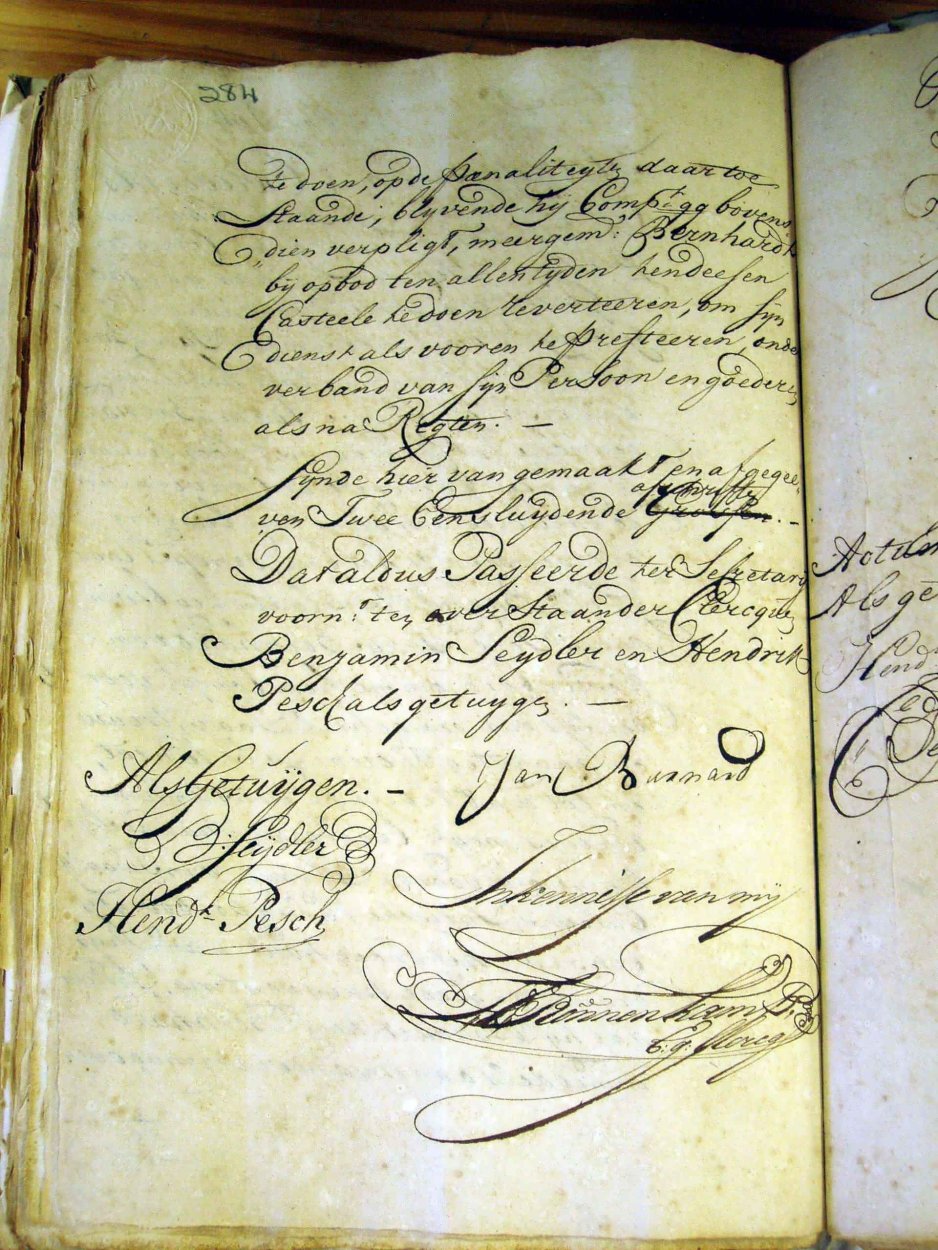 284
te doen, op de pœnaliteyt daartoe
staande; blyvende hij Comp:t gg boven-
„dien verpligt, meergem: Bernhardt
by opbod ten allen tyden hendeesen
Casteele te doen reverteeren, om sijn
dienst als vooren te presteeren, onder
verband van sijn Persoon en goederen
als na Regten. —
Sijnde hier van gemaakt en afgegee„
afschriften
ven Twee Eensluydende Grossen. -
Dat aldus Passeerde ter Secretary
voorn:t ten overstaan der Clercque
Benjamin Seydler en Hendrik
Pesch als getuygen. —
Als Getuijgen. -
Jan Barnard
B: Seijdler
Hend:k Pesch
In kennisse van mij
Rönnenkamp
E: g: Clercq
Als ge
Hend